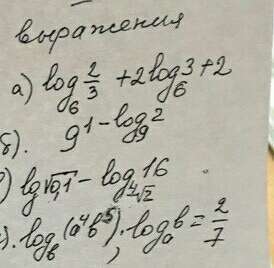 выражения
а) log₆ 2/3 + 2log₆ 3 + 2
б). 9^(1 - log₉ 2)
) lg√0,1 - log_(⁴√2) 16
). log_b (a⁴b⁵), log_a b = 2/7